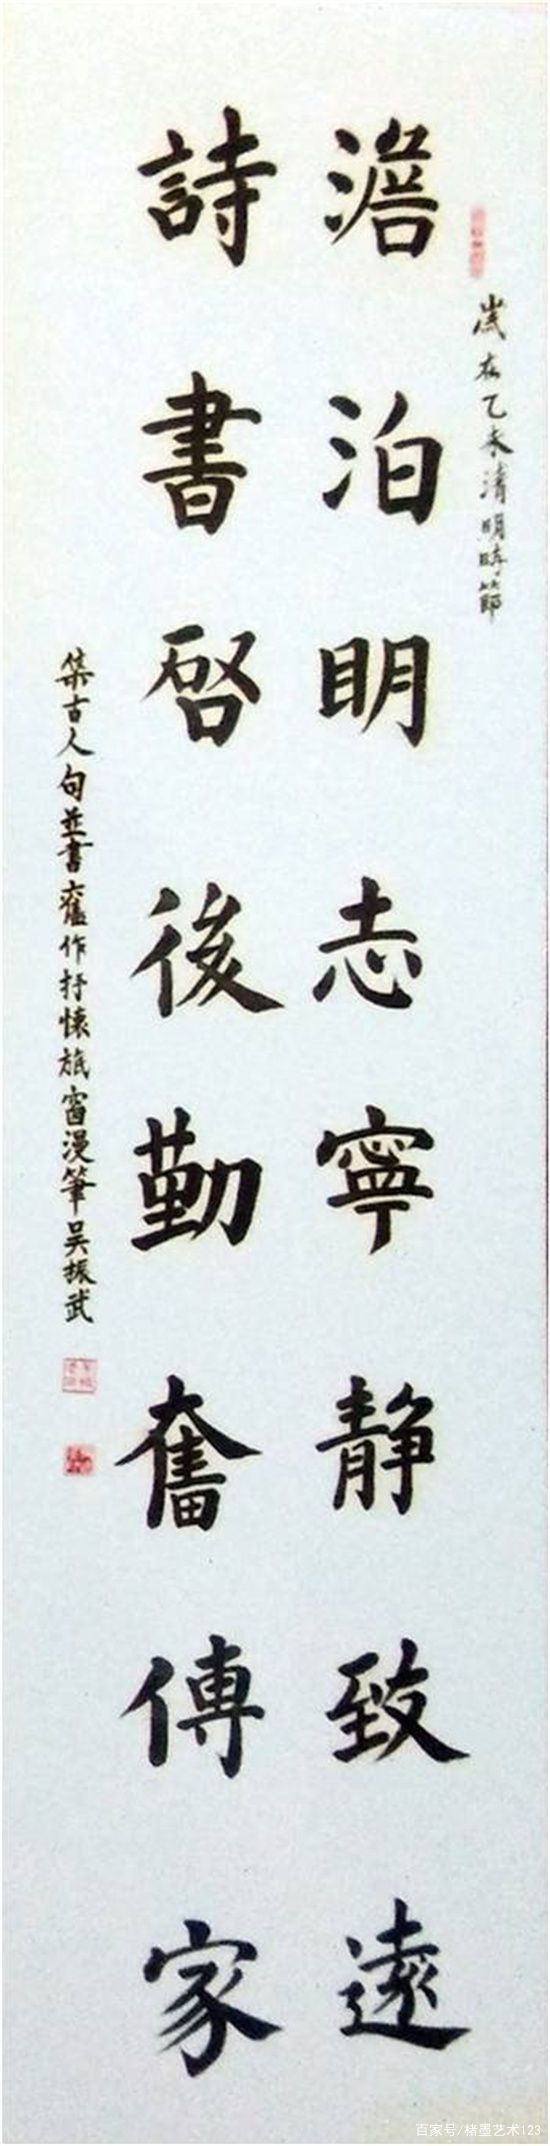 歲在乙未清明時節
澹泊明志寧靜致遠
詩書啓後勤奮傳家
集古人句並書舊作抒懷旅窗漫筆吳振武
百家号/楮墨艺术123